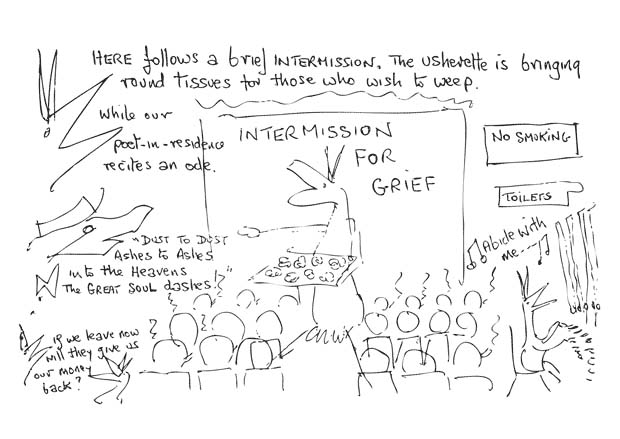 HERE follows a brief INTERMISSION. The usherette is bringing
round tissues for those who wish to weep.
While our
poet-in-residence
recites an ode.
INTERMISSION
FOR
GRIEF
NO SMOKING
TOILETS
Abide with
me
"DUST TO DUST
Ashes to Ashes
into the Heavens
The GREAT SOUL dashes!"
If we leave now
will they give us
our money
back?